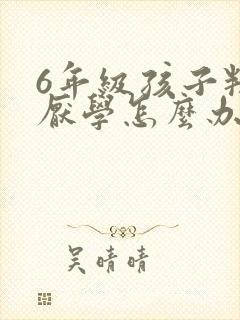 6年級孩子
厭學怎麼办
吴晴晴